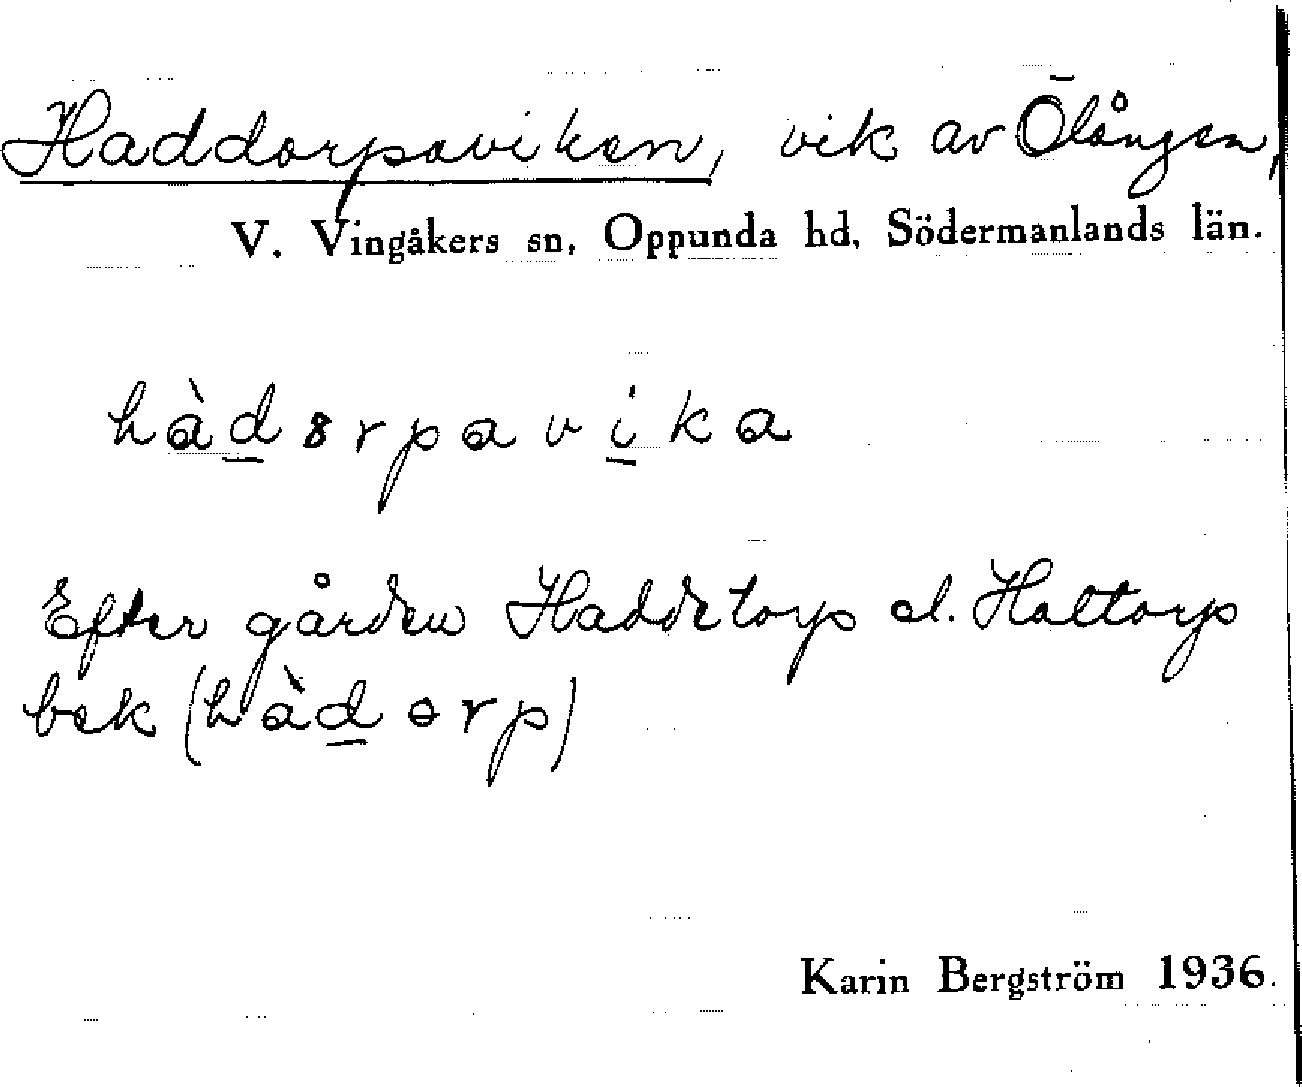 Haddorpaviken, vik av Ölången,
V. Vingåkers sn, Oppunda hd, Södermanlands län.
hàd̲ɵrpavi̲ka
Efter gården Haddetorp el. Haltorp
bek (hàd̲ɵrp)
Karin Bergström 1936.